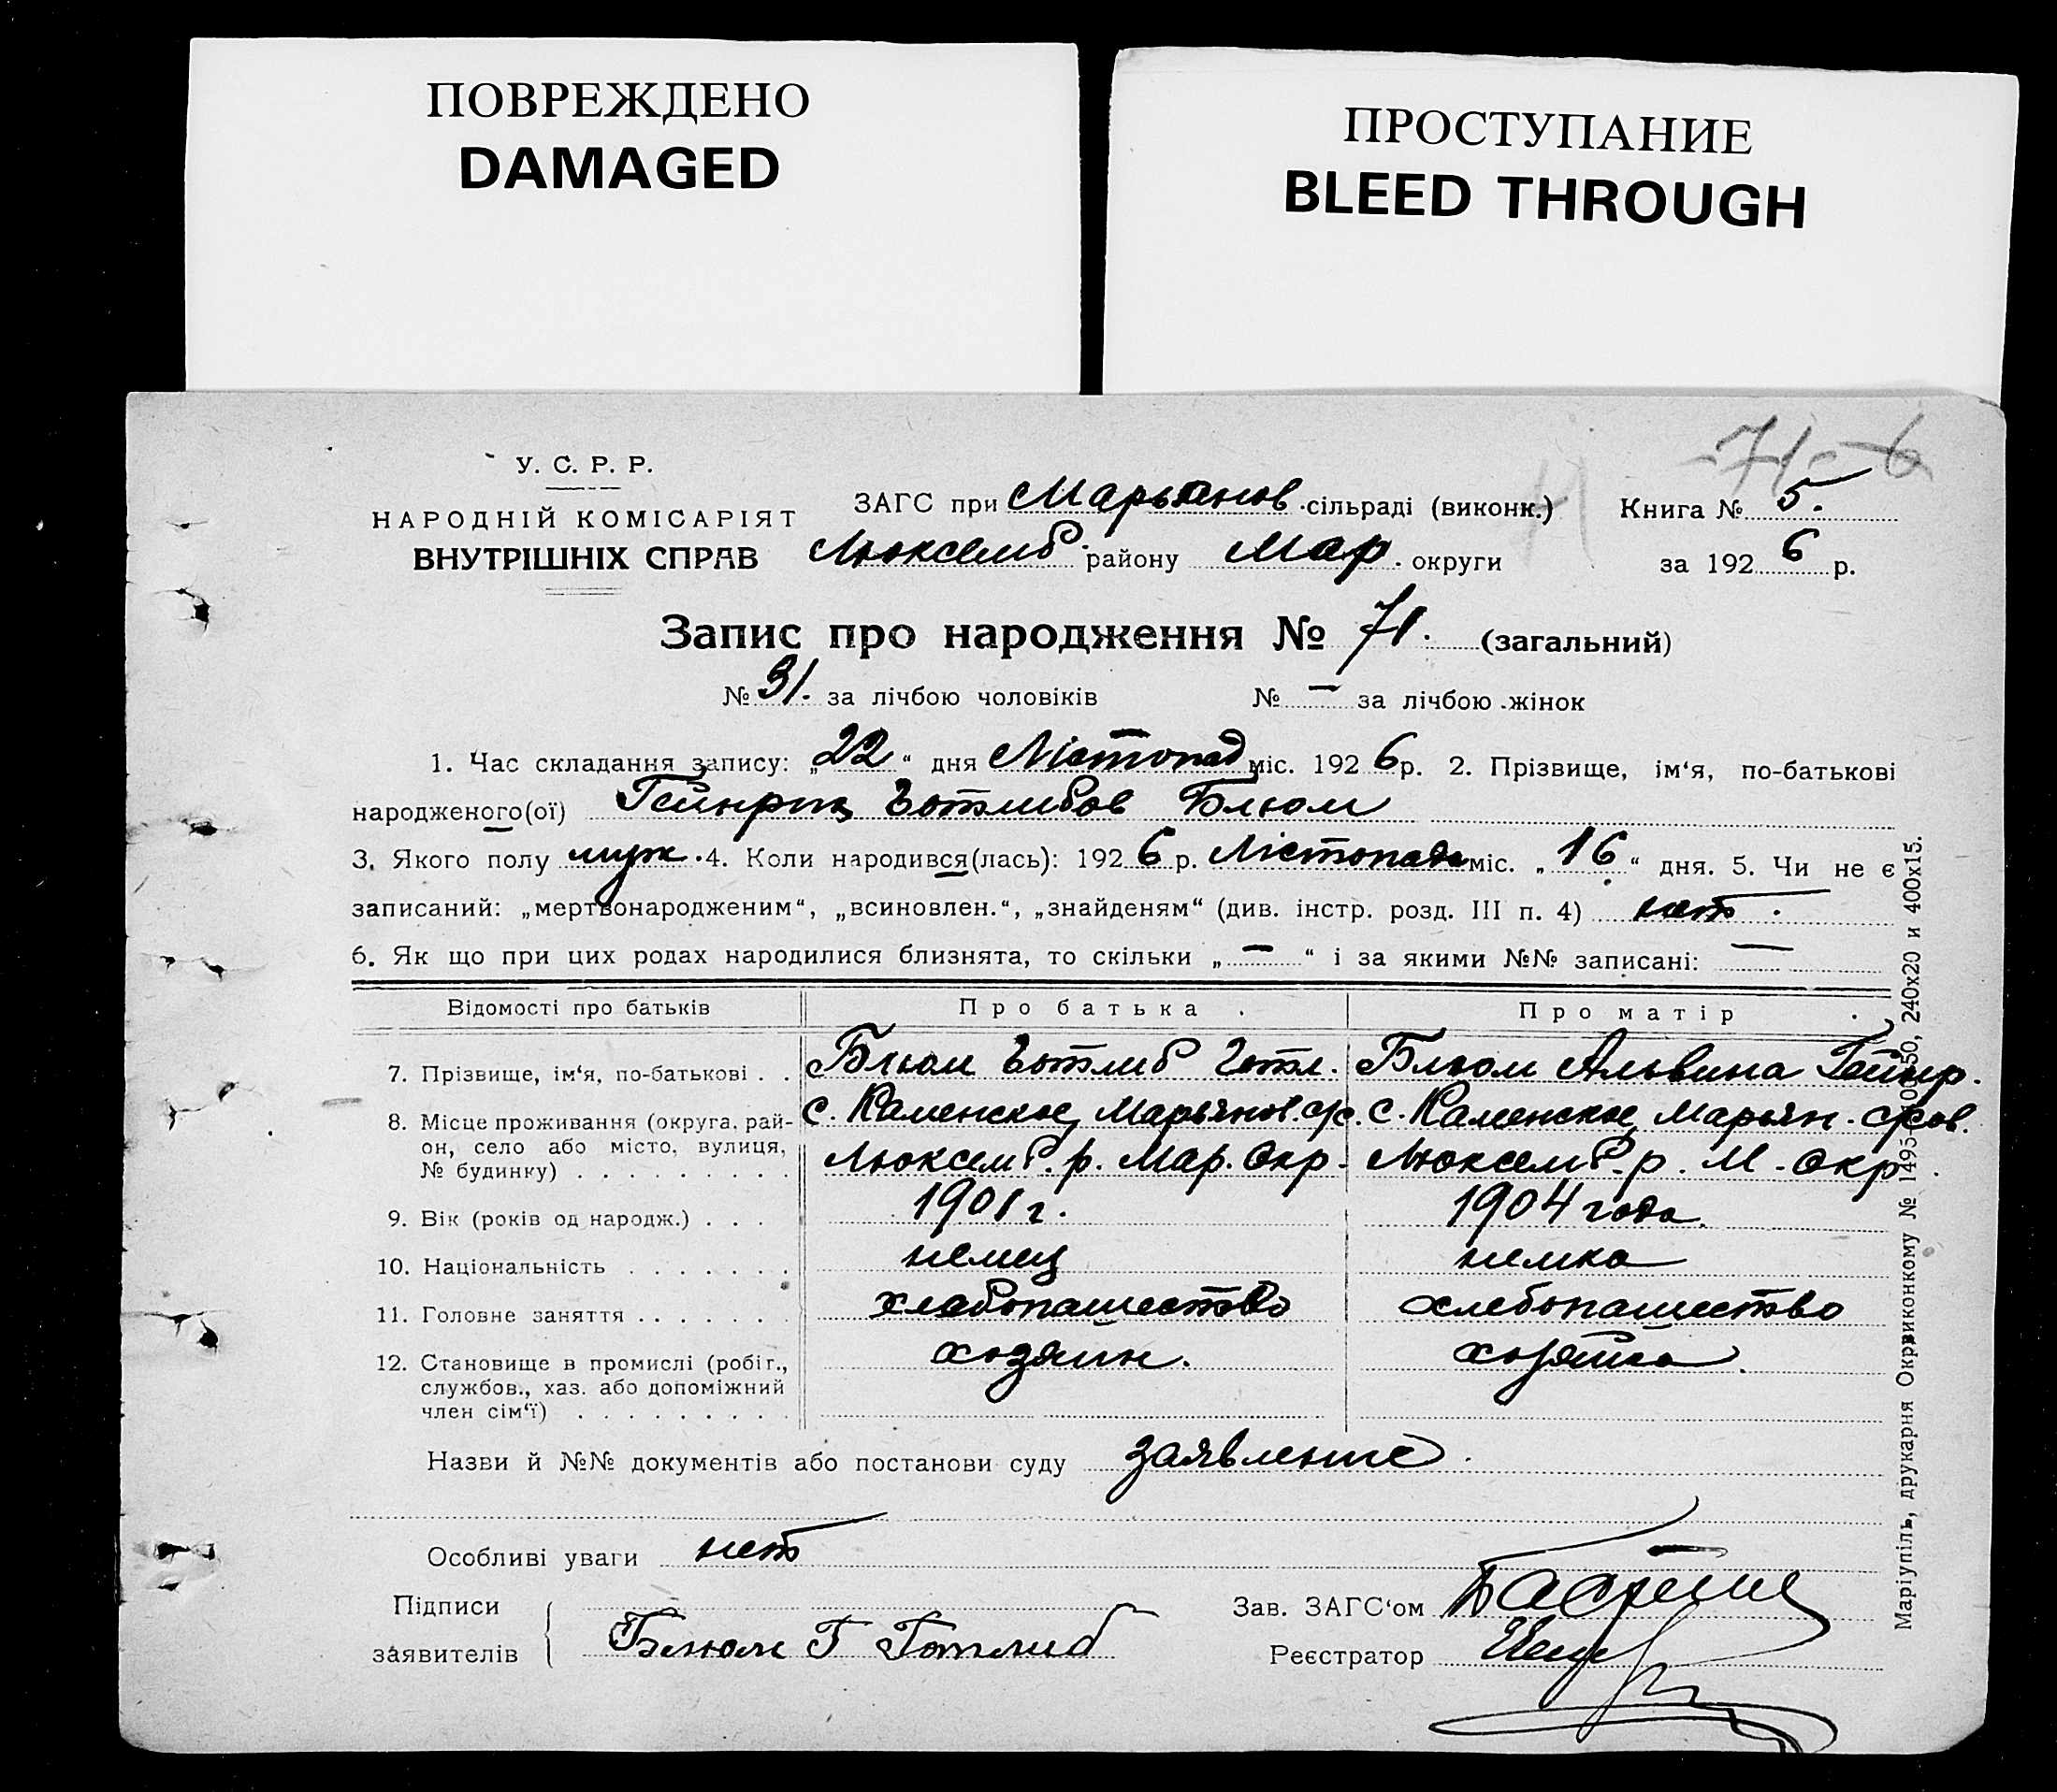 ПОВРЕЖДЕНО
DAMAGED
ПРОСТУПАНИЕ
BLEED THROUGH
-71-6
У. С. Р. Р.
НАРОДНІЙ КОМІСАРІЯТ
ВНУТРІШНІХ СПРАВ
ЗАГС при Марьянов. сільраді (виконк.)
Люксемб. району Мар. округи
Книга № 5.
за 1926 р.
Запис про народження № 71. (загальний)
№ 31. за лічбою чоловіків № — за лічбою жінок
1. Час складання запису: „22“ дня Лістопад міс. 1926 р. 2. Прізвище, ім‘я, по-батькові
народженого(ої) Гейнрих Готлибов Блюм
3. Якого полу муж. 4. Коли народився(лась): 1926 р. Лістопада міс. „16“ дня. 5. Чи не є
записаний: „мертвонародженим“, „всиновлен.“, „знайденям“ (див. інстр. розд. III п. 4) нет.
6. Як що при цих родах народилися близнята, то скільки „—“ і за якими №№ записані: —
Відомості про батьків Про батька Про матір
7. Прізвище, ім‘я, по-батькові . . Блюм Готлиб Готл. Блюм Альвина Гейнр.
8. Місце проживання (округа, рай- с. Каменское, Марьянов. с/с. с. Каменское, Марьян. с/сов.
он, село або місто, вулиця, Люксемб. р. Мар. Окр. Люксемб. р. М. Окр.
№ будинку)
9. Вік (років од народж.) . . . 1901 г. 1904 года.
10. Національність немец немка
11. Головне заняття хлебопашество хлебопашество
12. Становище в промислі (робіт., хозяин. хозяйка.
службов., хаз. або допоміжний
член сім‘ї)
Назви й №№ документів або постанови суду заявление.
Особливі уваги нет
Підписи
заявителів Блюм Г Готлиб
Зав. ЗАГС‘ом
Реєстратор
Маріупіль, друкарня Окрвиконкому № 1495 50, 240х20 и 400х15.